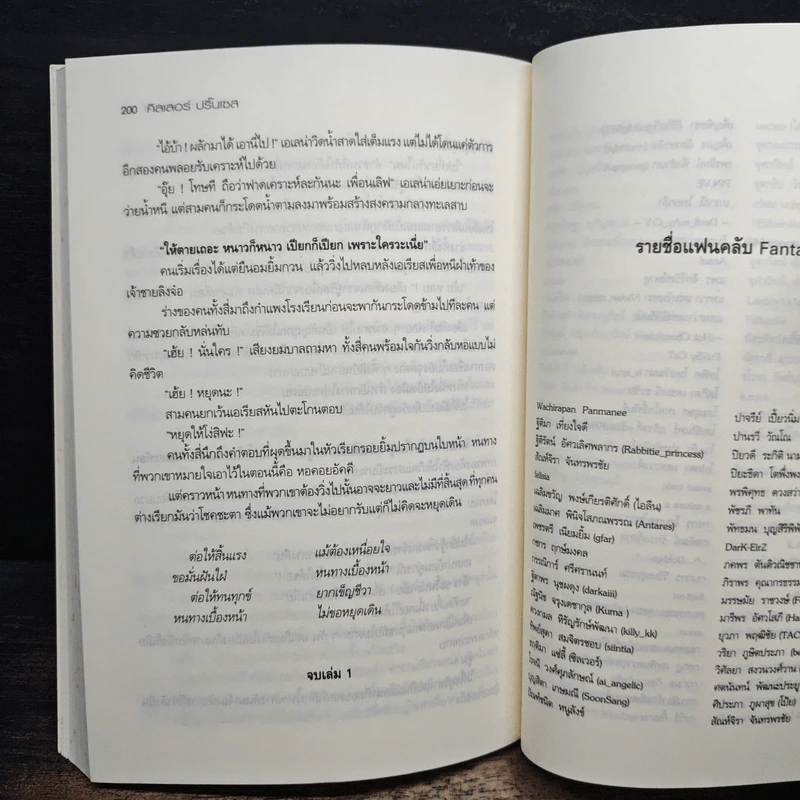 200 คิลเลอร์ ปริ๊นเซส
"ไอ้บ้า ! ผลักมาได้ เอานี่ไป !" เอเลน่าวิดน้ำสาดใส่เต็มแรง แต่ไม่ได้โดนแค่ตัวการ
อีกสองคนพลอยรับเคราะห์ไปด้วย
"อุ๊ย ! โทษที ถือว่าฟาดเคราะห์ละกันนะ เพื่อนเลิฟ" เอเลน่าเอ่ยเยาะก่อนจะ
ว่ายน้ำหนี แต่สามคนก็กระโดดน้ำตามลงมาพร้อมสร้างสงครามกลางทะเลสาบ
"ให้ตายเถอะ หนาวก็หนาว เปียกก็เปียก เพราะใครวะเนี่ย"
คนเริ่มเรื่องได้แต่ยืนอมยิ้มกวน แล้ววิ่งไปหลบหลังเอเรียสเพื่อหนีฝ่าเท้าของ
เจ้าชายลิงจ๋อ
ร่างของคนทั้งสี่มาถึงกำแพงโรงเรียนก่อนจะพากันกระโดดข้ามไปทีละคน แต่
ความซวยกลับหล่นทับ
"เฮ้ย ! นั่นใคร !" เสียงยมบาลถามหา ทั้งสี่คนพร้อมใจกันวิ่งกลับหอแบบไม่
คิดชีวิต
"เฮ้ย ! หยุดนะ !"
สามคนยกเว้นเอเรียสหันไปตะโกนตอบ
"หยุดให้โง่สิฟะ !"
คนทั้งสี่นึกถึงคำตอบที่ผุดขึ้นมาในหัวเรียกรอยยิ้มปรากฏบนใบหน้า หนทาง
ที่พวกเขาหมายใจเอาไว้ในตอนนี้คือ หอคอยอัคคี
แต่คราวหน้า หนทางที่พวกเขาต้องวิ่งไปนั้นอาจจะยาวและไม่มีที่สิ้นสุด ที่ทุกคน
ต่างเรียกมันว่าโชคชะตา ซึ่งแม้พวกเขาจะไม่อยากรับแต่ก็ไม่คิดจะหยุดเดิน
ต่อให้สิ้นแรง แม้ต้องเหนื่อยใจ
ขอมั่นฝันใฝ่ หนทางเบื้องหน้า
ต่อให้ทนทุกข์ ยากเข็ญชีวา
หนทางเบื้องหน้า ไม่ขอหยุดเดิน
จบเล่ม 1
รายชื่อแฟนคลับ Fanta
Wachirapan Panmanee
ฐิติมา เที่ยงใจดี
ฐิติรัตน์ อัศวเลิศพลากร (Rabbitie_princess)
สัณห์จิรา จันทรพรชัย
felisia
เฉลิมขวัญ พงษ์เกียรติศักดิ์ (ไอลีน)
เฉลิมมาศ พินิจโสภณพรรณ (Antares)
เพชรตรี เนียมยิ้ม (gfar)
กชกร ฤกษ์มงคล
กรรณิการ์ ศรีครานนท์
ฐิตาพร นุชผดุง (darkaiii)
ณัฐนิช จรุงเดชากุล (Kuma )
ดวงกมล หิรัญรักษ์พัฒนา (killy_kk)
ทิพย์สุดา สมจิตรชอบ (siintia)
แซ่ลี้ (ซิลเวอร์)
วงศ์ศุภลักษณ์ (ai_angelic)
เกษมณี (SoonSang)
หนูสังข์
ปาจรีย์ เปี้ยวนิ่ม
ปานรวี วัณโณ
ปิยวดี ระกิติ
ปิยะธิดา โตพึ่งพง
พรพิศุทธ ดวงสว่า
พัชรภี พาทัน
พัทธมน บุญสิริพิ
DarK-EirZ
ภคพร ตันติวณิชชา
ภิราพร คุณากรธรร
มรรษมัย ราชวงษ์ (F
มารีพร อัศวโสภี (Ha
ยุวภา พฤฒิชัย (TAC
วริยา ภูษิตประภา (be
วิศัลยา สงวนวงศ์วาน (
ศตนันทน์ พัฒนะประยู
ศิประภา ภูผาสุข (โป้ย)
สัณห์จิรา จันทรพรชัย